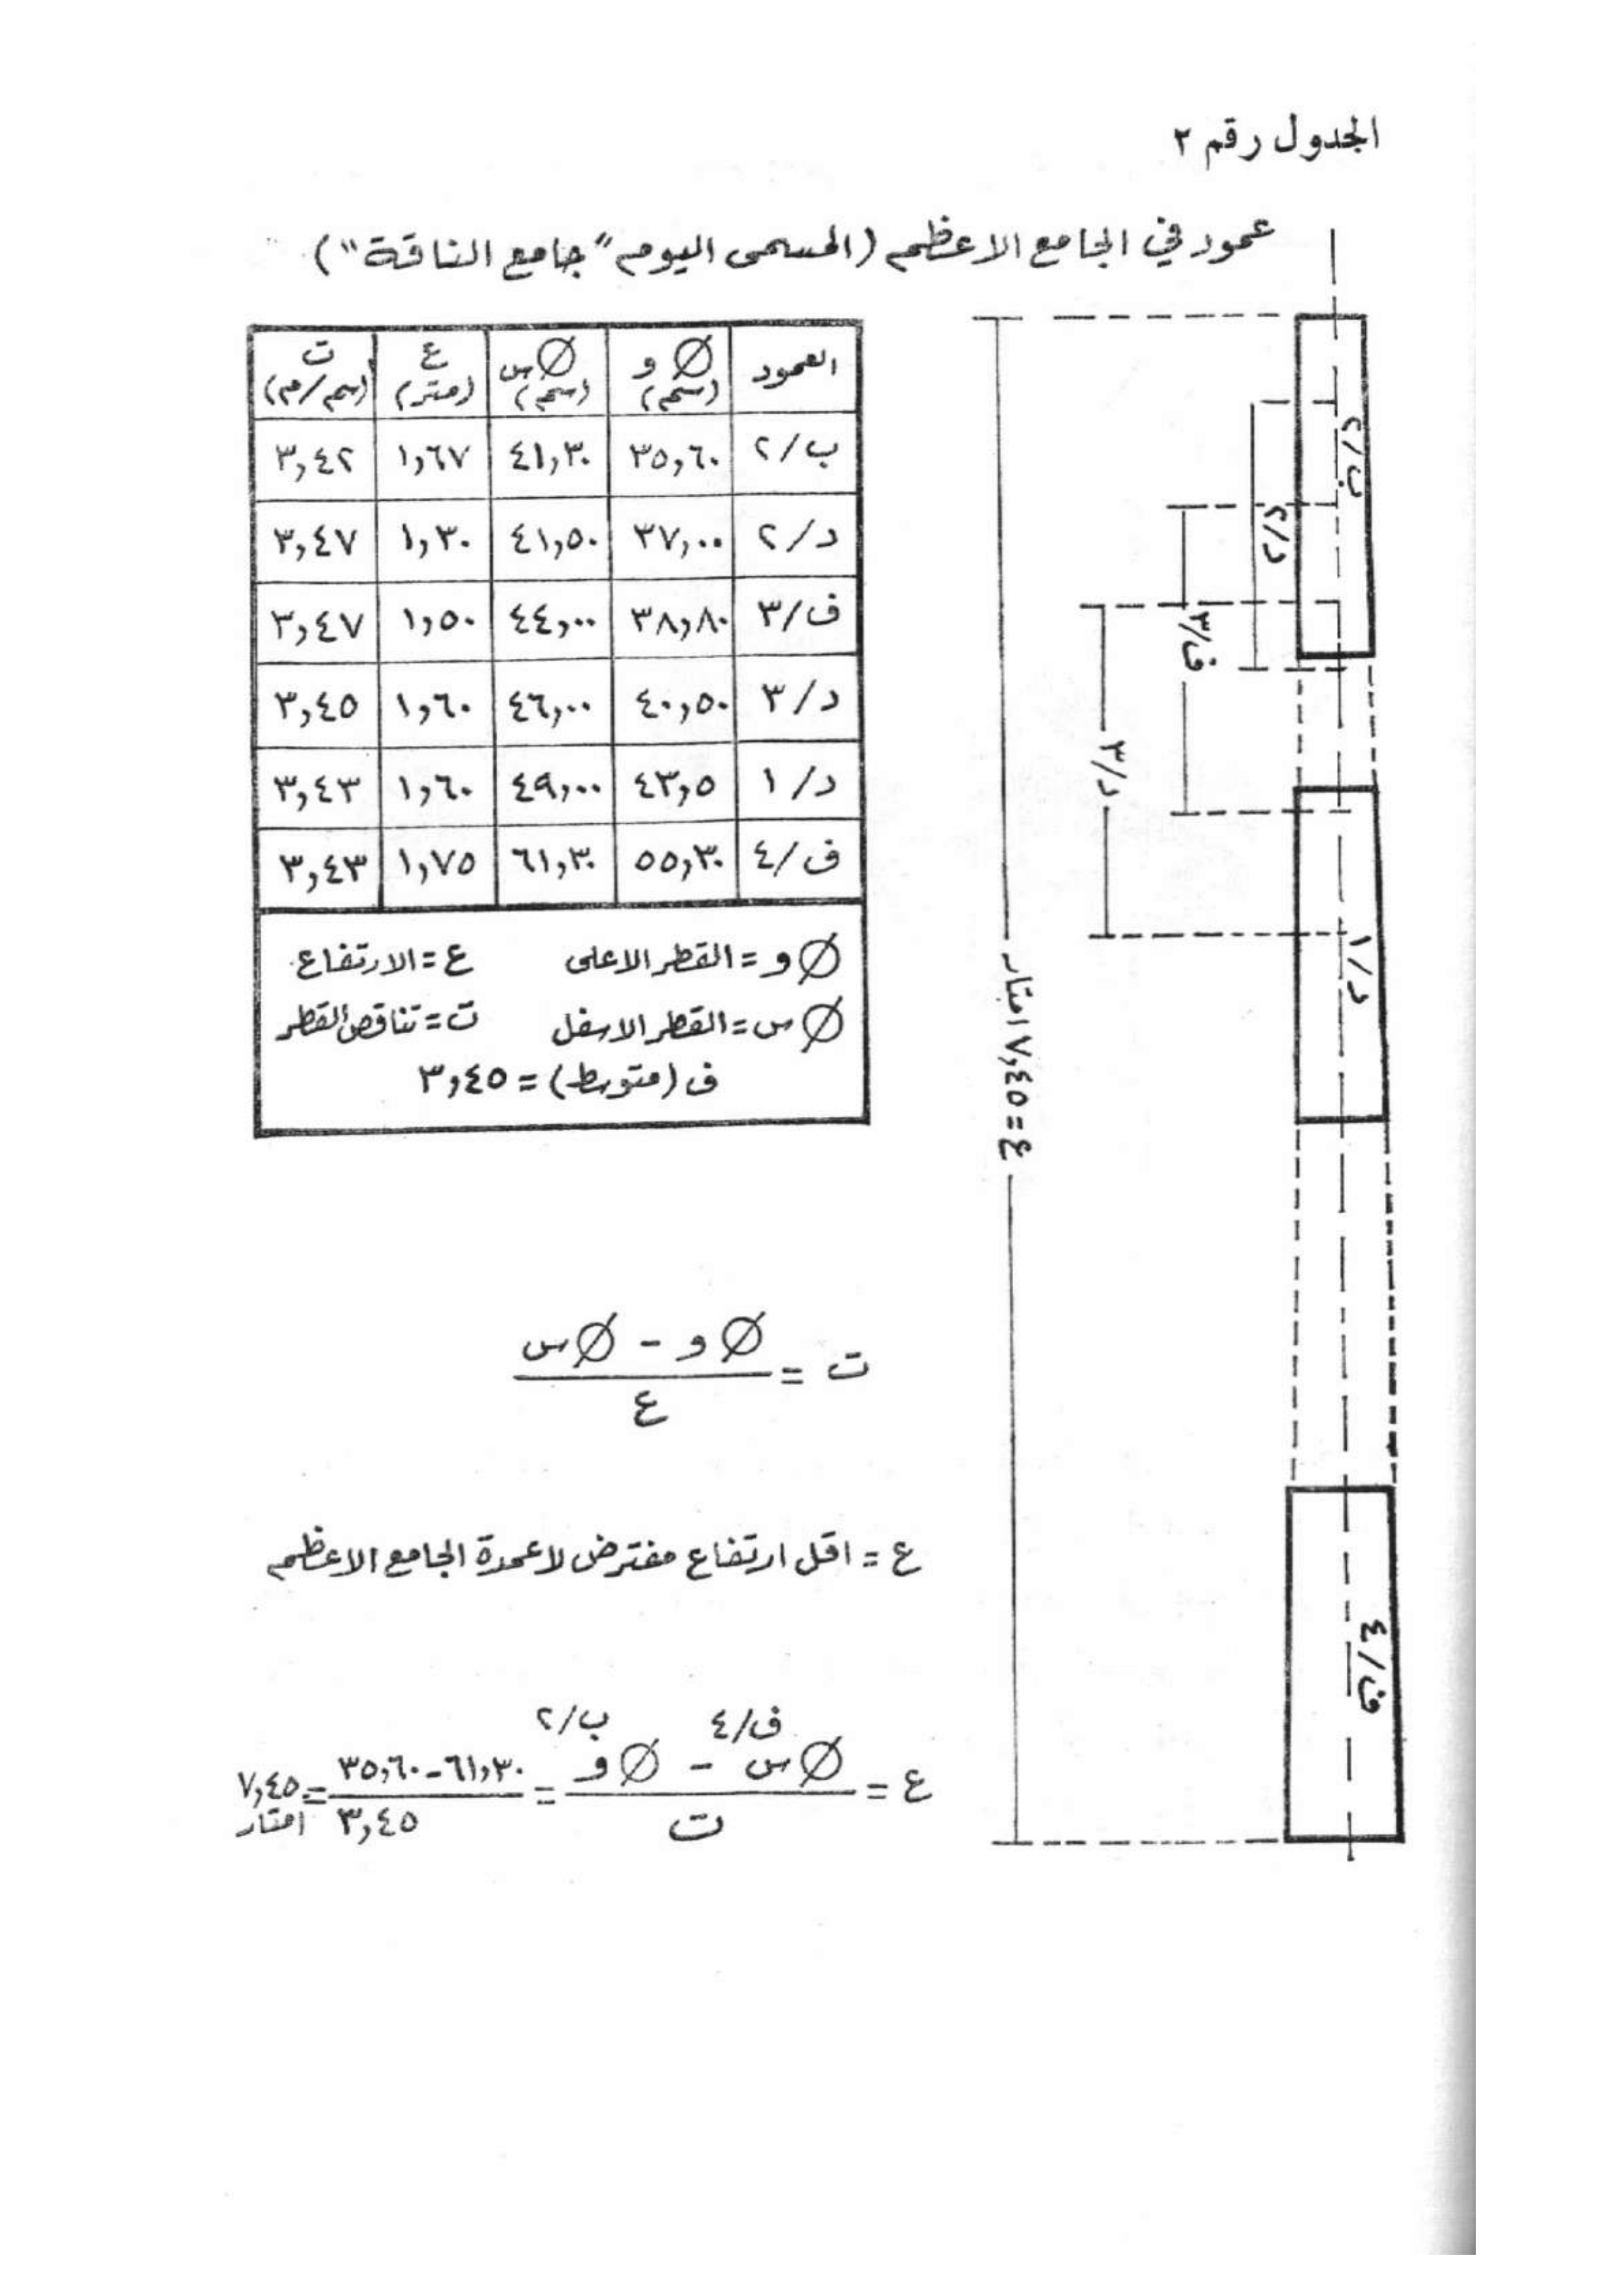 الجدول رقم ٢
عمود في الجامع الاعظم (المسمى اليوم "جامع الناقة")
العمود | Ø و (سم) | Ø س (سم) | ع (متر) | ت (سم/م)
ب/٢ | ٣٥,٦٠ | ٤١,٣٠ | ١,٦٧ | ٣,٤٢
د/٢ | ٣٧,٠٠ | ٤١,٥٠ | ١,٣٠ | ٣,٤٧
ف/٣ | ٣٨,٨٠ | ٤٤,٠٠ | ١,٥٠ | ٣,٤٧
د/٣ | ٤٠,٥٠ | ٤٦,٠٠ | ١,٦٠ | ٣,٤٥
د/١ | ٤٣,٥ | ٤٩,٠٠ | ١,٦٠ | ٣,٤٣
ف/٤ | ٥٥,٣٠ | ٦١,٣٠ | ١,٧٥ | ٣,٤٣
Ø و = القطر الاعلى ع = الارتفاع
Ø س = القطر الاسفل ت = تناقص القطر
ف (متوسط) = ٣,٤٥
ب/٢
د/٢
ف/٣
د/٣
د/١
ع = ٧,٤٥ امتار
ف/٤
ت = Ø و - Ø س
ع
ع = اقل ارتفاع مفترض لاعمدة الجامع الاعظم
ف/٤ ب/٢
ع = Ø س - Ø و = ٦١,٣٠ - ٣٥,٦٠ = ٧,٤٥
ت ٣,٤٥ امتار